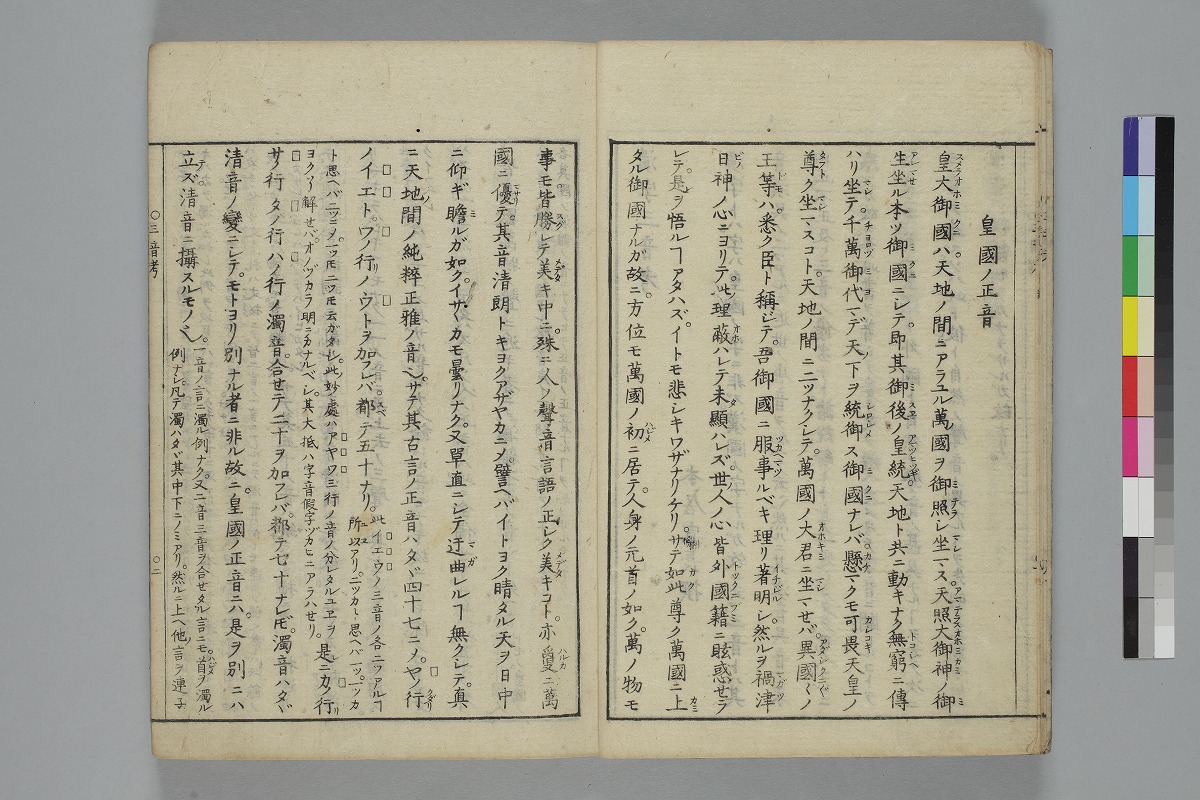 皇國ノ正音
皇大御國ハ天地ノ間ニアラユル萬國ヲ御照シ坐マス。天照大御神ノ御
生坐ル本ツ御國ニシテ。即其御後ノ皇統天地ト共ニ動キナク無窮ニ傳
ハリ坐テ。千萬御代マデ天下ヲ統御ス御國ナレバ。懸マクモ可畏天皇ノ
尊ク坐マスコト。天地ノ間ニ二ツナクシテ。萬國ノ大君ニ坐マセバ。異國々ノ
王等ハ。悉ク臣ト稱シテ。吾御國ニ服事ルベキ理リ著明シ。然ルヲ禍津
日神ノ心ニヨリテ。此ノ理蔽ハレテ未顯ハレズ。世人ノ心皆外國籍ニ眩惑セラ
レテ。是ヲ悟ルヿアタハズ。イトモ悲シキワザナリケリ。サテ如此尊ク萬國ニ上
タル御國ナルガ故ニ。方位モ萬國ノ初ニ居テ。人身ノ元首ノ如ク。萬ノ物モ
事モ皆勝レテ美キ中ニ。殊ニ人ノ聲音言語ノ正シク美キコト。亦夐ニ萬
國ニ優テ。其音清朗トキヨクアザヤカニシテ。譬ヘバイトヨク晴タル天ヲ日中
ニ仰ギ瞻ルガ如ク。イサヽカモ曇リナク。又單直ニシテ迂曲レルヿ無クシテ。真
ニ天地間ノ純粹正雅ノ音也。サテ其古言ノ正音ハタヾ四十七ニシテ。ヤノ行
ノイエト。ワノ行ノウトヲ加フレバ。都テ五十ナリ。此イエウノ三音ノ各二ツアルヿ所以アリ。二ツカト思ヘバ一ツ。一ツカ
ト思ヘバ二ツニシテ。一ツトモ二ツトモ云ガタシ。此妙處ハアヤワ三行ノ音ノ分レタルユヱヲ
ヨクヨク解セバ。オノヅカラ明ニナルベシ。其大抵ハ字音假字ヅカヒニアラハセリ。是ニカノ行
サノ行タノ行ハノ行ノ濁音。合セテ二十ヲ加フレバ。都テ七十ナレドモ。濁音ハタヾ
清音ノ變ニシテ。モトヨリ別ナル者ニ非ル故ニ。皇國ノ正音ニハ。是ヲ別ニハ
立ズ。清音ニ攝スルモノ也。一音ノ言ニ濁ル例ナク。又二音三音ヲ合セタル言ニモ。首ヲ濁ル
例ナシ。凡テ濁ハタヾ其中下ニノミアリ。然ルニ上ヘ他言ヲ連子
〇三音考
〇二